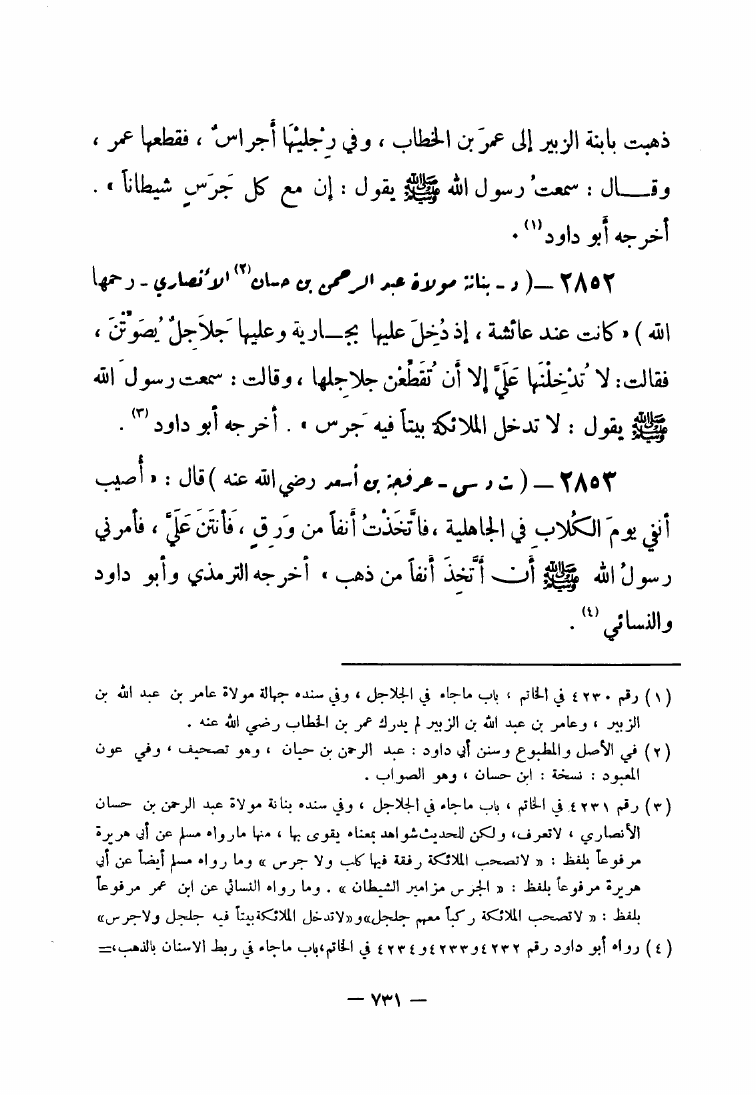 ذهبت بابنة الزبير إلى عمرَ بن الخطاب ، وفي رِجْليْهَا أجراسٌ ، فقطعها عمر ،
وقـــال : سمعتُ رسول الله ﷺ يقول : إن مع كل جَرَسٍ شيطاناً » .
أخرجه أبو داود(١) .
٢٨٥٢ – ( د - بنانة مولاة عبد الرحمن بن حسان(٢) الأنصاري - رحمها
الله ) « كانت عند عائشة ، إذ دُخِلَ عليها بجــارية وعليها جَلاجِلُ يُصَوِّتْنَ ،
فقالت: لا تُدْخِلْنَها عَلَيَّ إلا أن تُقَطِّعْن جلاجلها ، وقالت : سمعت رسولَ الله
ﷺ يقول : لا تدخل الملائكة بيتاً فيه جَرس » . أخرجه أبو داود(٣) .
٢٨٥٣ – ( ت د س - عرفجة بن أسعد رضي الله عنه ) قال : « أُصيب
أنفي يومَ الكُلابِ في الجاهلية ، فاتَّخَذْتُ أنفاً من وَرِقٍ ، فَأَنْتَنَ عَلَيَّ ، فأمرني
رسولُ الله ﷺ أن أتَّخِذَ أنفاً من ذهب » أخرجه الترمذي وأبو داود
والنسائي(٤) .
(١) رقم ٤٢٣٠ في الخاتم ، باب ماجاء في الجلاجل ، وفي سنده جهالة مولاة عامر بن عبد الله بن
الزبير ، وعامر بن عبد الله بن الزبير لم يدرك عمر بن الخطاب رضي الله عنه .
(٢) في الأصل والمطبوع وسنن أبي داود : عبد الرحمن بن حيان ، وهو تصحيف ، وفي عون
المعبود : نسخة : ابن حسان ، وهو الصواب .
(٣) رقم ٤٢٣١ في الخاتم ، باب ماجاء في الجلاجل ، وفي سنده بنانة مولاة عبد الرحمن بن حسان
الأنصاري ، لاتعرف، ولكن للحديث شواهد بمعناه يقوى بها ، منها مارواه مسلم عن أبي هريرة
مرفوعاً بلفظ : « لاتصحب الملائكة رفقة فيها كلب ولا جرس » وما رواه مسلم أيضاً عن أبي
هريرة مرفوعاً بلفظ : « الجرس مزامير الشيطان » . وما رواه النسائي عن ابن عمر مرفوعاً
بلفظ : « لاتصحب الملائكة ركباً معهم جلجل»و«لاتدخل الملائكة بيتاً فيه جلجل ولاجرس»
(٤) رواه أبو داود رقم ٤٢٣٢ و٤٢٣٣ و٤٢٣٤ في الخاتم،باب ماجاء في ربط الاسنان بالذهب،=
– ٧٣١ –